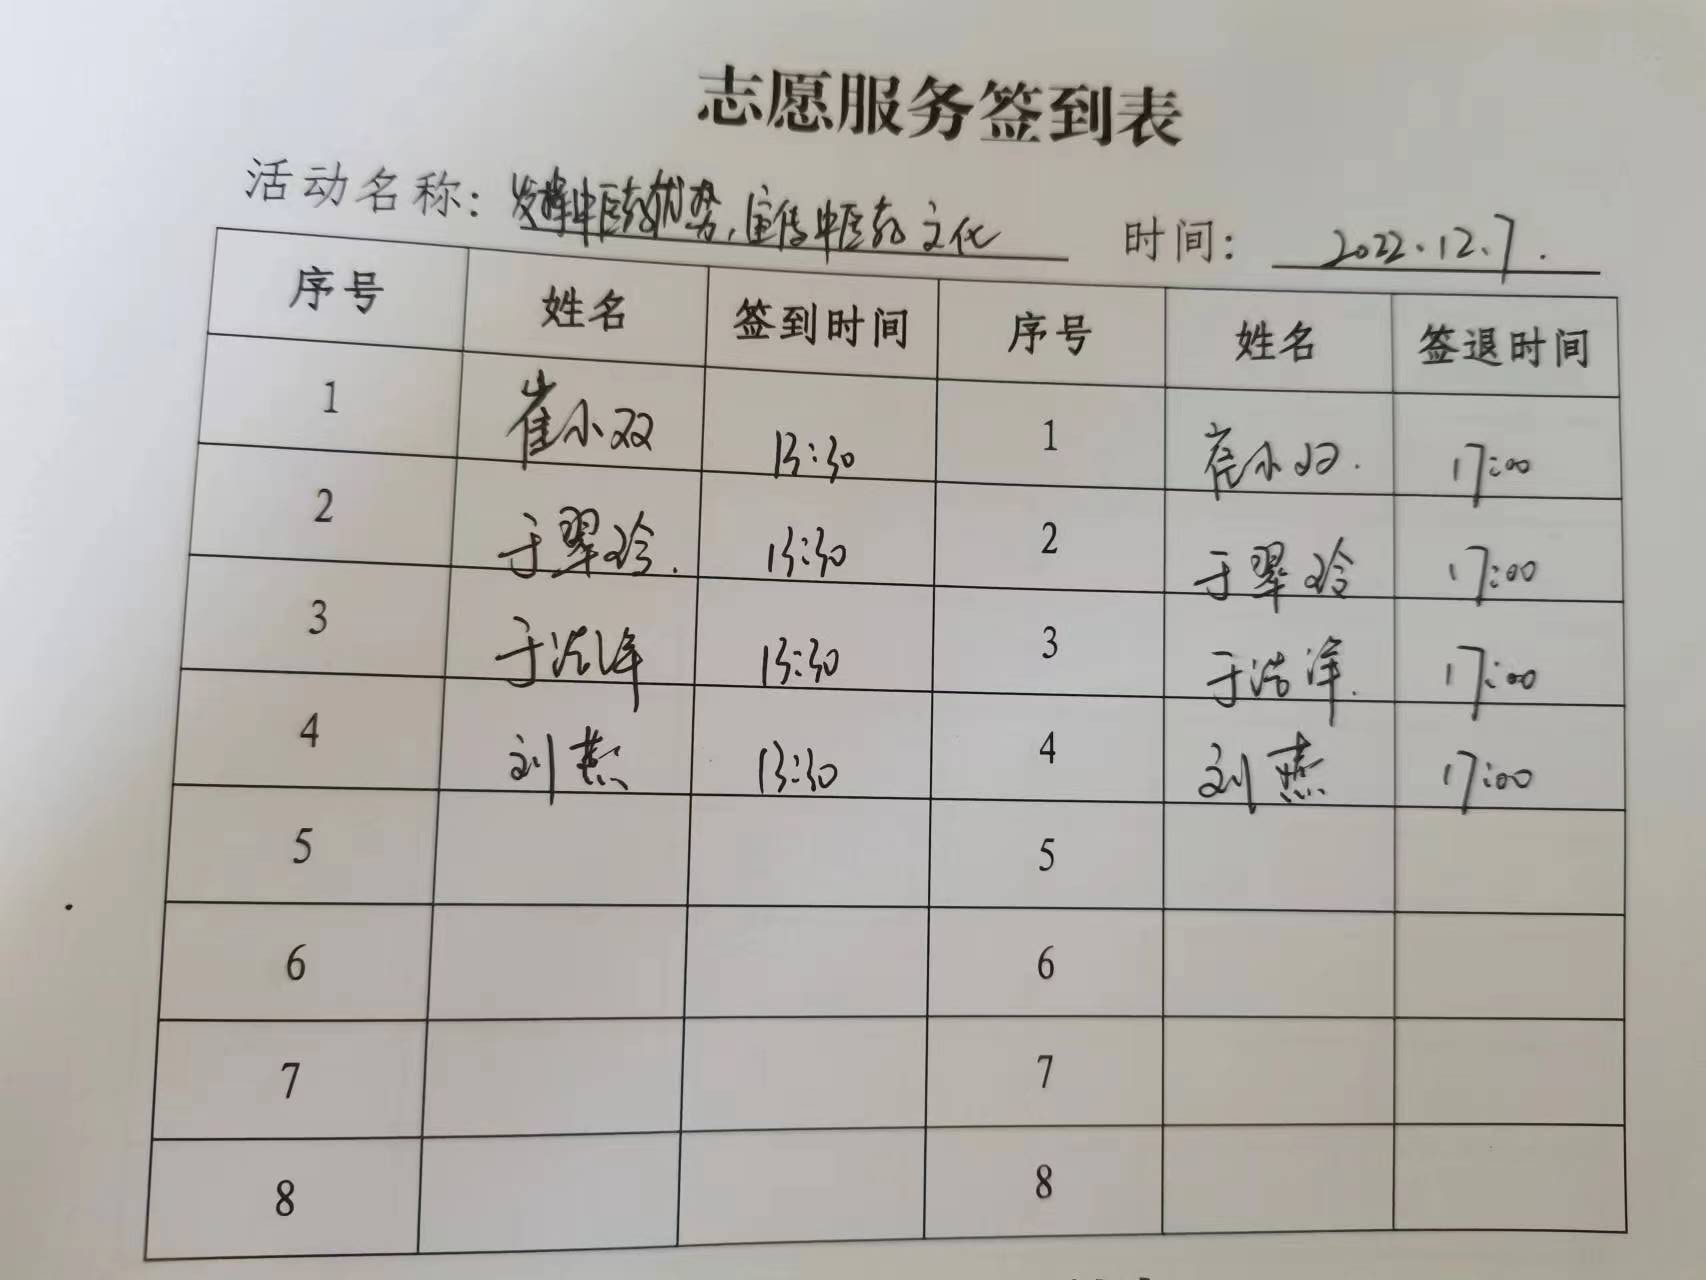 志愿服务签到表
活动名称：发挥中医药优势，宣传中医药文化 时间：2022.12.7.
序号 姓名 签到时间 序号 姓名 签退时间
1 崔小双 13:30 1 崔小双. 17:00
2 于翠玲. 13:30 2 于翠玲 17:00
3 于浩洋 13:30 3 于浩洋. 17:00
4 刘燕 13:30 4 刘燕 17:00
5 5
6 6
7 7
8 8